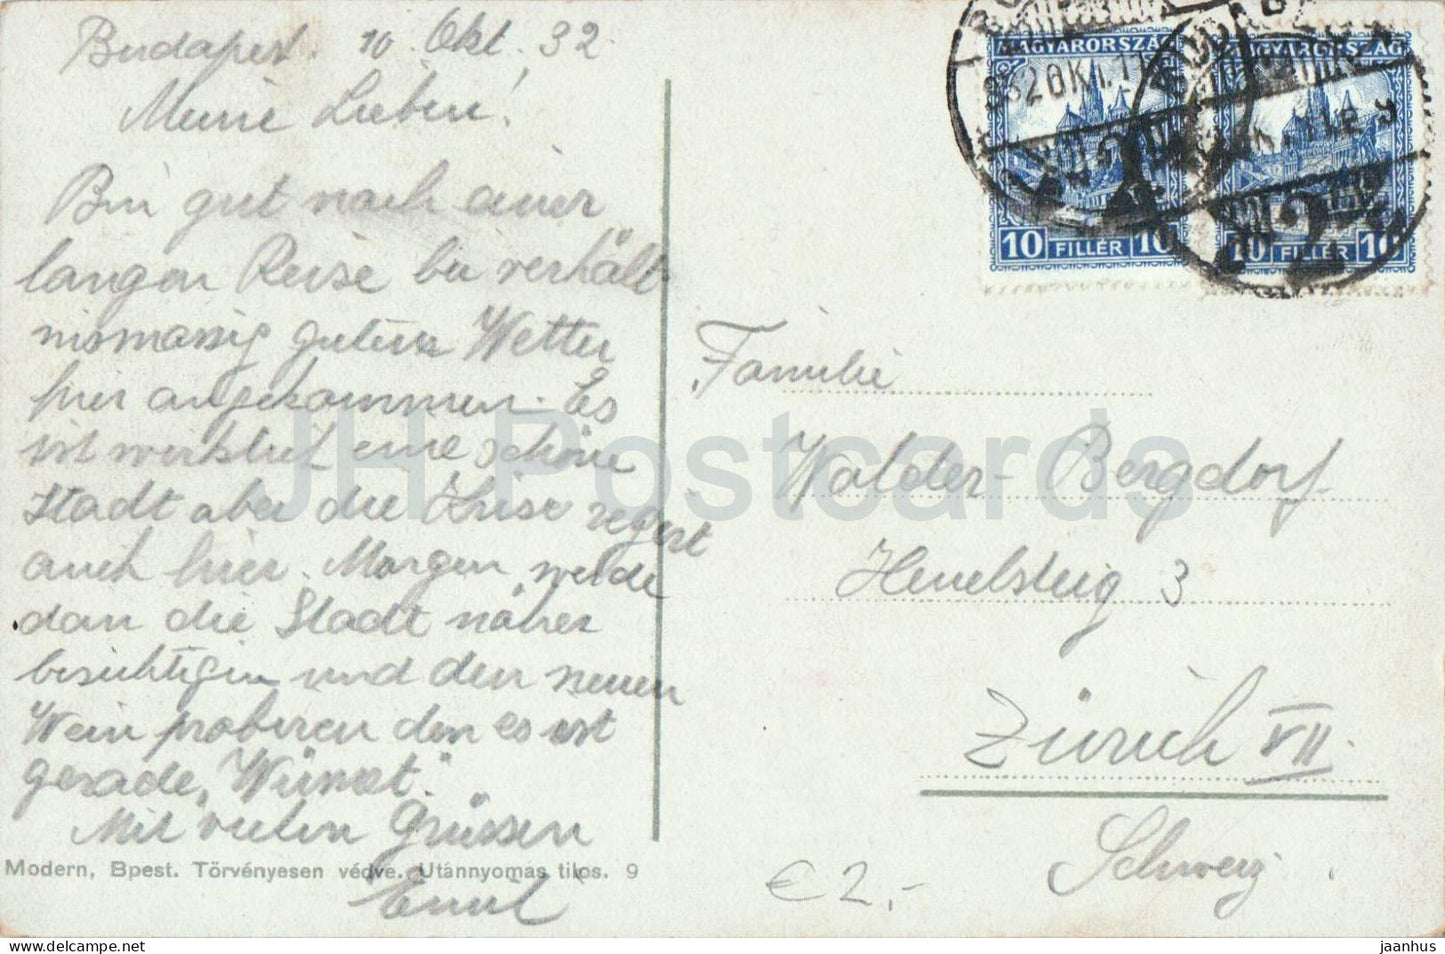 Budapest. 10. Okt. 32.
Meine Lieben!
Bin gut nach einer
langen Reise bei verhält
nismässig gutem Wetter
hier angekommen. Es
ist wirklich eine schöne
Stadt aber die Krise regert
auch hier. Morgen werde
dan die Stadt näher
besichtigen und den neuen
Wein probieren den es ist
gerade "Wümet".
Mit vielen Grüssen
Emil
Modern, Bpest. Törvényesen védve. Utánnyomás tilos. 9
MAGYARORSZÁG
10 FILLÉR 10
MAGYARORSZÁG
10 FILLÉR 10
BUDAPEST
Familie
Walder-Bergdorf
3
Zürich VII.
Schweiz
€2,-
JH Postcards
jaanhus